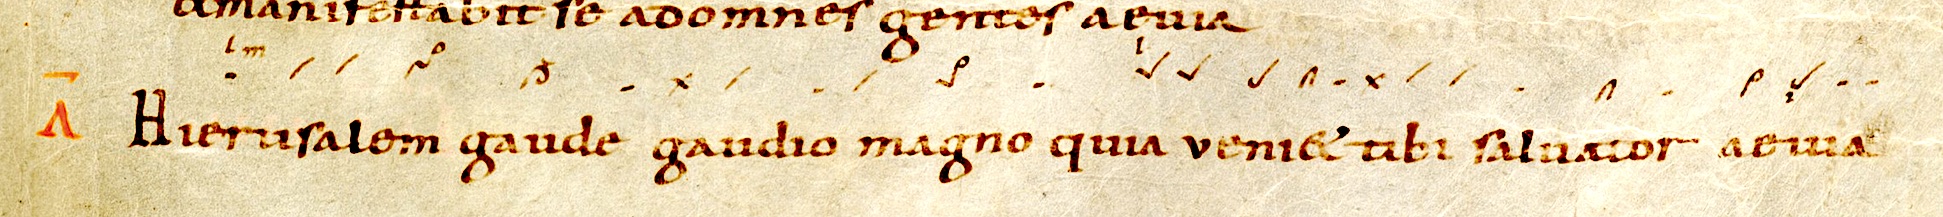 &manifestabit se adomnes gentes aeuia
A Hierusalem gaude gaudio magno quia veni& tibi saluator aeuia